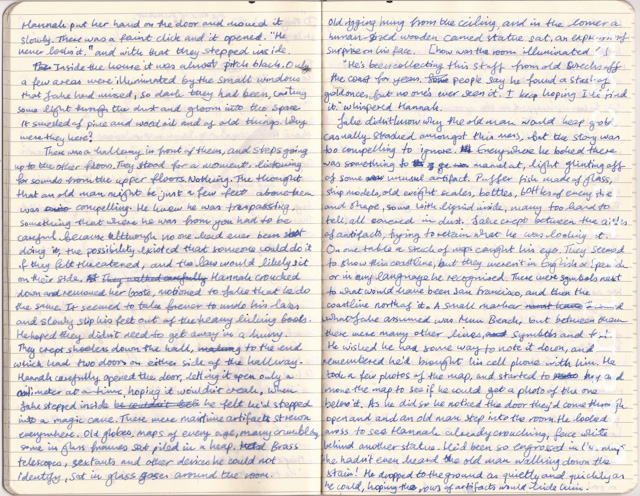 Hannah put her hand on the door and moved it
slowly. There was a faint click and it opened. "He
never locks it." and with that they stepped inside.
Inside the house it was almost pitch black. Only
a few areas were illuminated by the small windows
that Jake had missed, so dark they had been, casting
some light through the dust and gloom into the space
It smelled of pine and wood oil and of old things. Why
were they here?
There was a hallway in front of them, and steps going
up to the other floors. They stood for a moment listening
for sounds from the upper floors. Nothing. The thought
that an old man might be just a few feet above them
was compelling. He knew he was trespassing.
something that where he was from you had to be
careful because although no one liked ever been
doing it, the possibility existed that someone could do it
if they felt threatened, and the law would likely sit
on their side. They walked carefully Hannah crouched
down and removed her boots, motioned to Jake that he do
the same. It seemed to take forever to undo his laces
and slowly slip his feet out of the heavy hiking boots.
He hoped they didn't need to get away in a hurry.
They crept shoeless down the hall, to the end
which had two doors on either side of the hallway.
Hannah carefully opened the door, letting it open only a
centimeter at a time, hoping it wouldn't creak, when
Jake stepped inside he couldn't he felt he'd stepped
into a magic cave. There were maritime artifacts strewn
everywhere. Old globes, maps of every age, many crumbling
some in glass frames piled in a heap. Brass
telescopes, sextants and other devices he could not
identify, sat in glass cases around the room.
Old rigging hung from the ceiling, and in the corner a
human-sized wooden carved statue sat, an expression of
surprise on his face. (how was the room illuminated?)
"He's been collecting this stuff from old wrecks off
the coast for years. Some people say he found a stash of
goldones, but no one's ever seen it. I keep hoping I'll find
it." whispered Hannah.
Jake didn't know why the old man would keep gold
casually stashed amongst this mess, but the story was
too compelling to ignore. Everywhere he looked there
was something to marvel at, light glinting off
of some unusual artifact. Puffer fish made of glass,
ship models, old weight scales, bottles, bottles of every size
and shape, some with liquid inside, many too hard to
tell, all covered in dust. Jake crept between the aisles
of artifacts, trying to retain what he was looking at.
On one table a stack of maps caught his eye. They seemed
to show this coastline, but they weren't in English or Spanish
or in any language he recognised. There were symbols next
to what would have been San Francisco, and then the
coastline north of it. A small marker
what Jake assumed was Muir Beach, but between them
there were many other lines, and symbols and
He wished he had some way to note it down, and
remembered he'd brought his cell phone with him. He
took a few photos of the map, and started to try and
move the map to see if he could get a photo of the one
below it. As he did so he noticed the door they'd come through
open and an old man step into the room. He looked
across to see Hannah already crouching, face white
behind another statue. He'd been so engrossed in
he hadn't even heard the old man walking down the
stairs! He dropped to the ground as quietly and quickly as
he could, hoping the rows of artifacts would hide him.